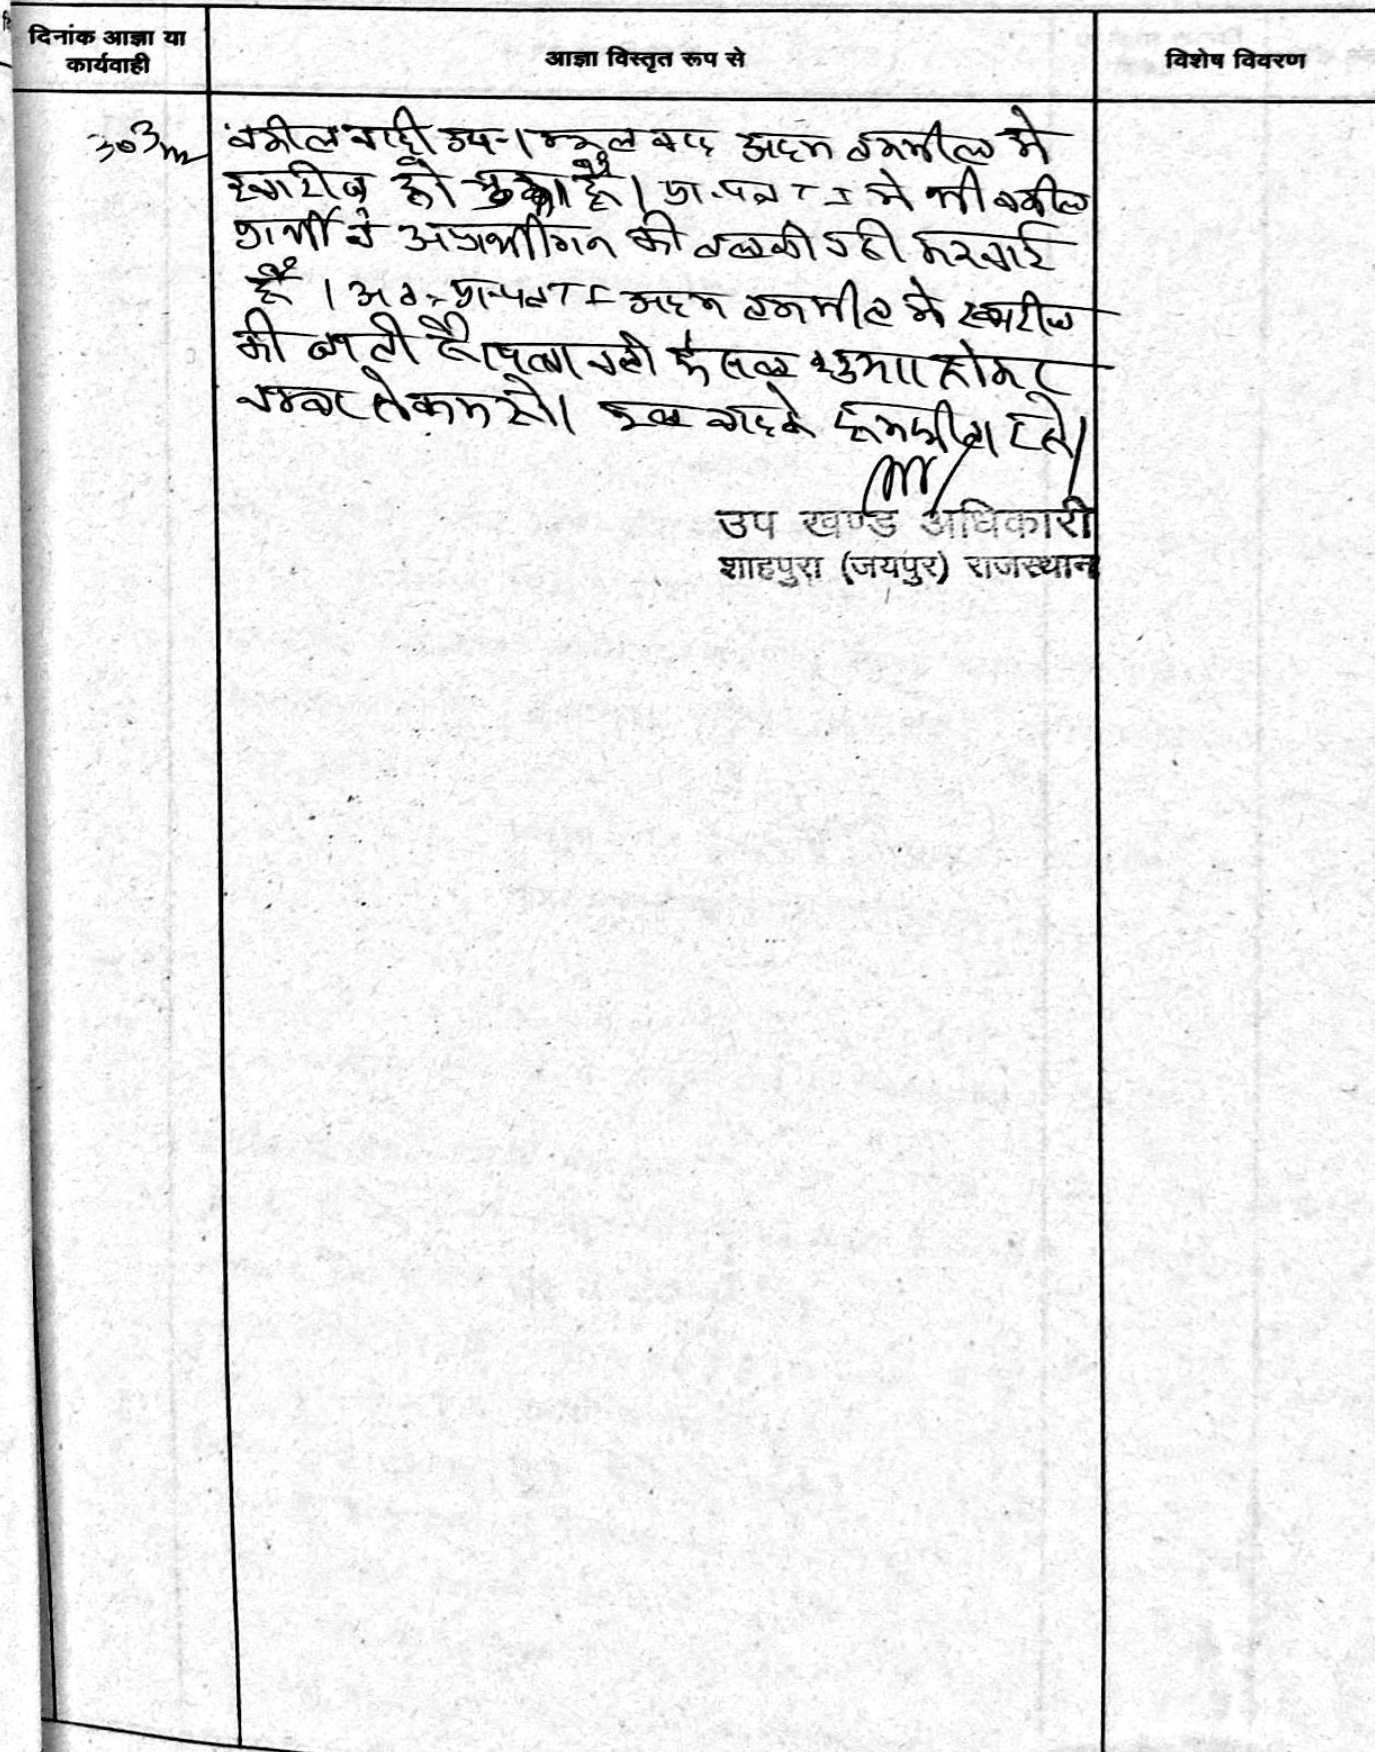 दिनांक आज्ञा या
कार्यवाही
आज्ञा विस्तृत रूप से
विशेष विवरण
वकील वादी उप-। मूल वाद अदम तामील मे
खारीज हो चुका है। प्रा.पत्र T I मे भी वकील
प्रार्थी ने अप्रार्थीगन की तलबी नही करवाई
है । अतः प्रा-पत्र T I अदम तामील मे खारीज
की जाती है। पत्रावली फैसल शुमार होकर
नम्बर से कम हो। मूल वाद के रहे।
उप खण्ड अधिकारी
शाहपुरा (जयपुर) राजस्थान